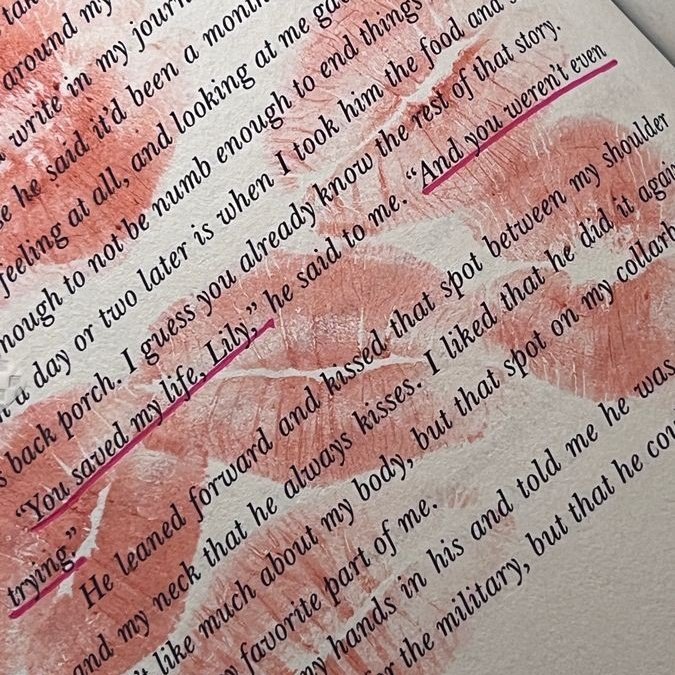 around my
write in my journ
e he said it'd been a month
feeling at all, and looking at me ga
nough to not be numb enough to end things
a day or two later is when I took him the food and
s back porch. I guess you already know the rest of that story.
“You saved my life, Lily,” he said to me. “And you weren't even
trying.”
He leaned forward and kissed that spot between my shoulder
and my neck that he always kisses. I liked that he did it again
't like much about my body, but that spot on my collarb
y favorite part of me.
my hands in his and told me he was
or the military, but that he cou